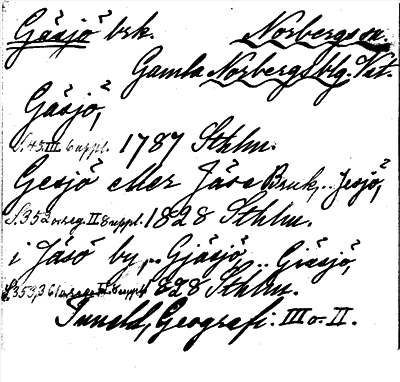 Gäsjö brk. Norbergs sn.
Gamla Norbergs blg. Vstm.
Gäsjö,
S. 45. III 6 uppl. 1787 Sthlm.
Gesjö eller Jäse Bruk, .. Jesjö,
S. 352 o. reg. II 8 uppl. 1828 Sthlm.
i Jäsö by, ... Gjäsjö ... Gräsjö,
S. 353, 361 o. reg. II 8 uppl. 1828 Sthlm.
Tuneld, Geografi. III o. II.